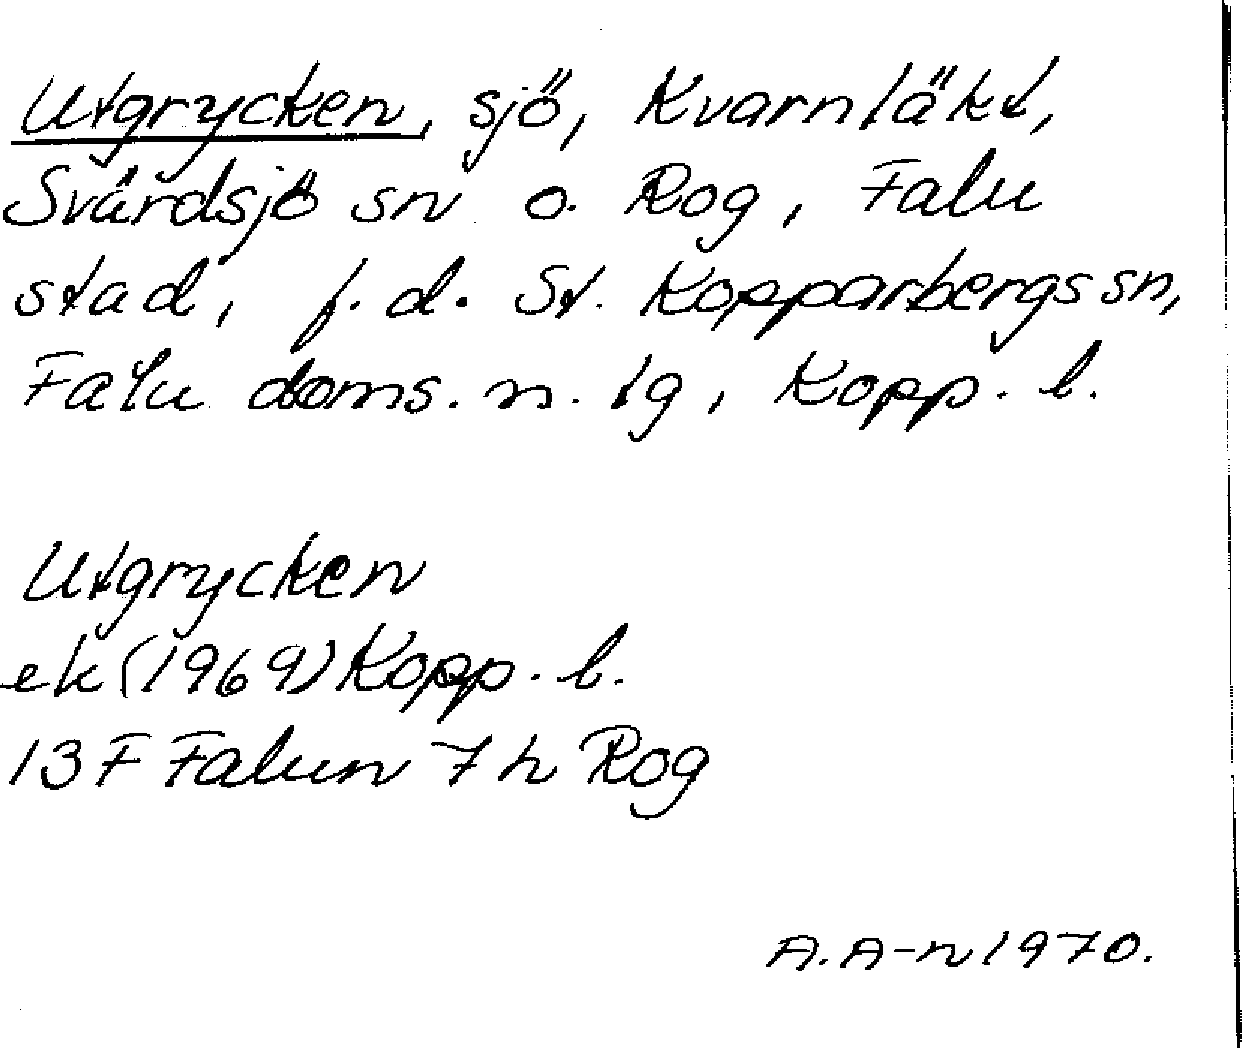 Utgrycken, sjö, Kvarntäkt,
Svärdsjö sn o. Rog, Falu
stad, f.d. St. Kopparbergs sn,
Falu doms. n. tg, Kopp. l.
Utgrycken
ek (1969) Kopp. l.
13 F Falun 7 h Rog
A. A-n 1970.